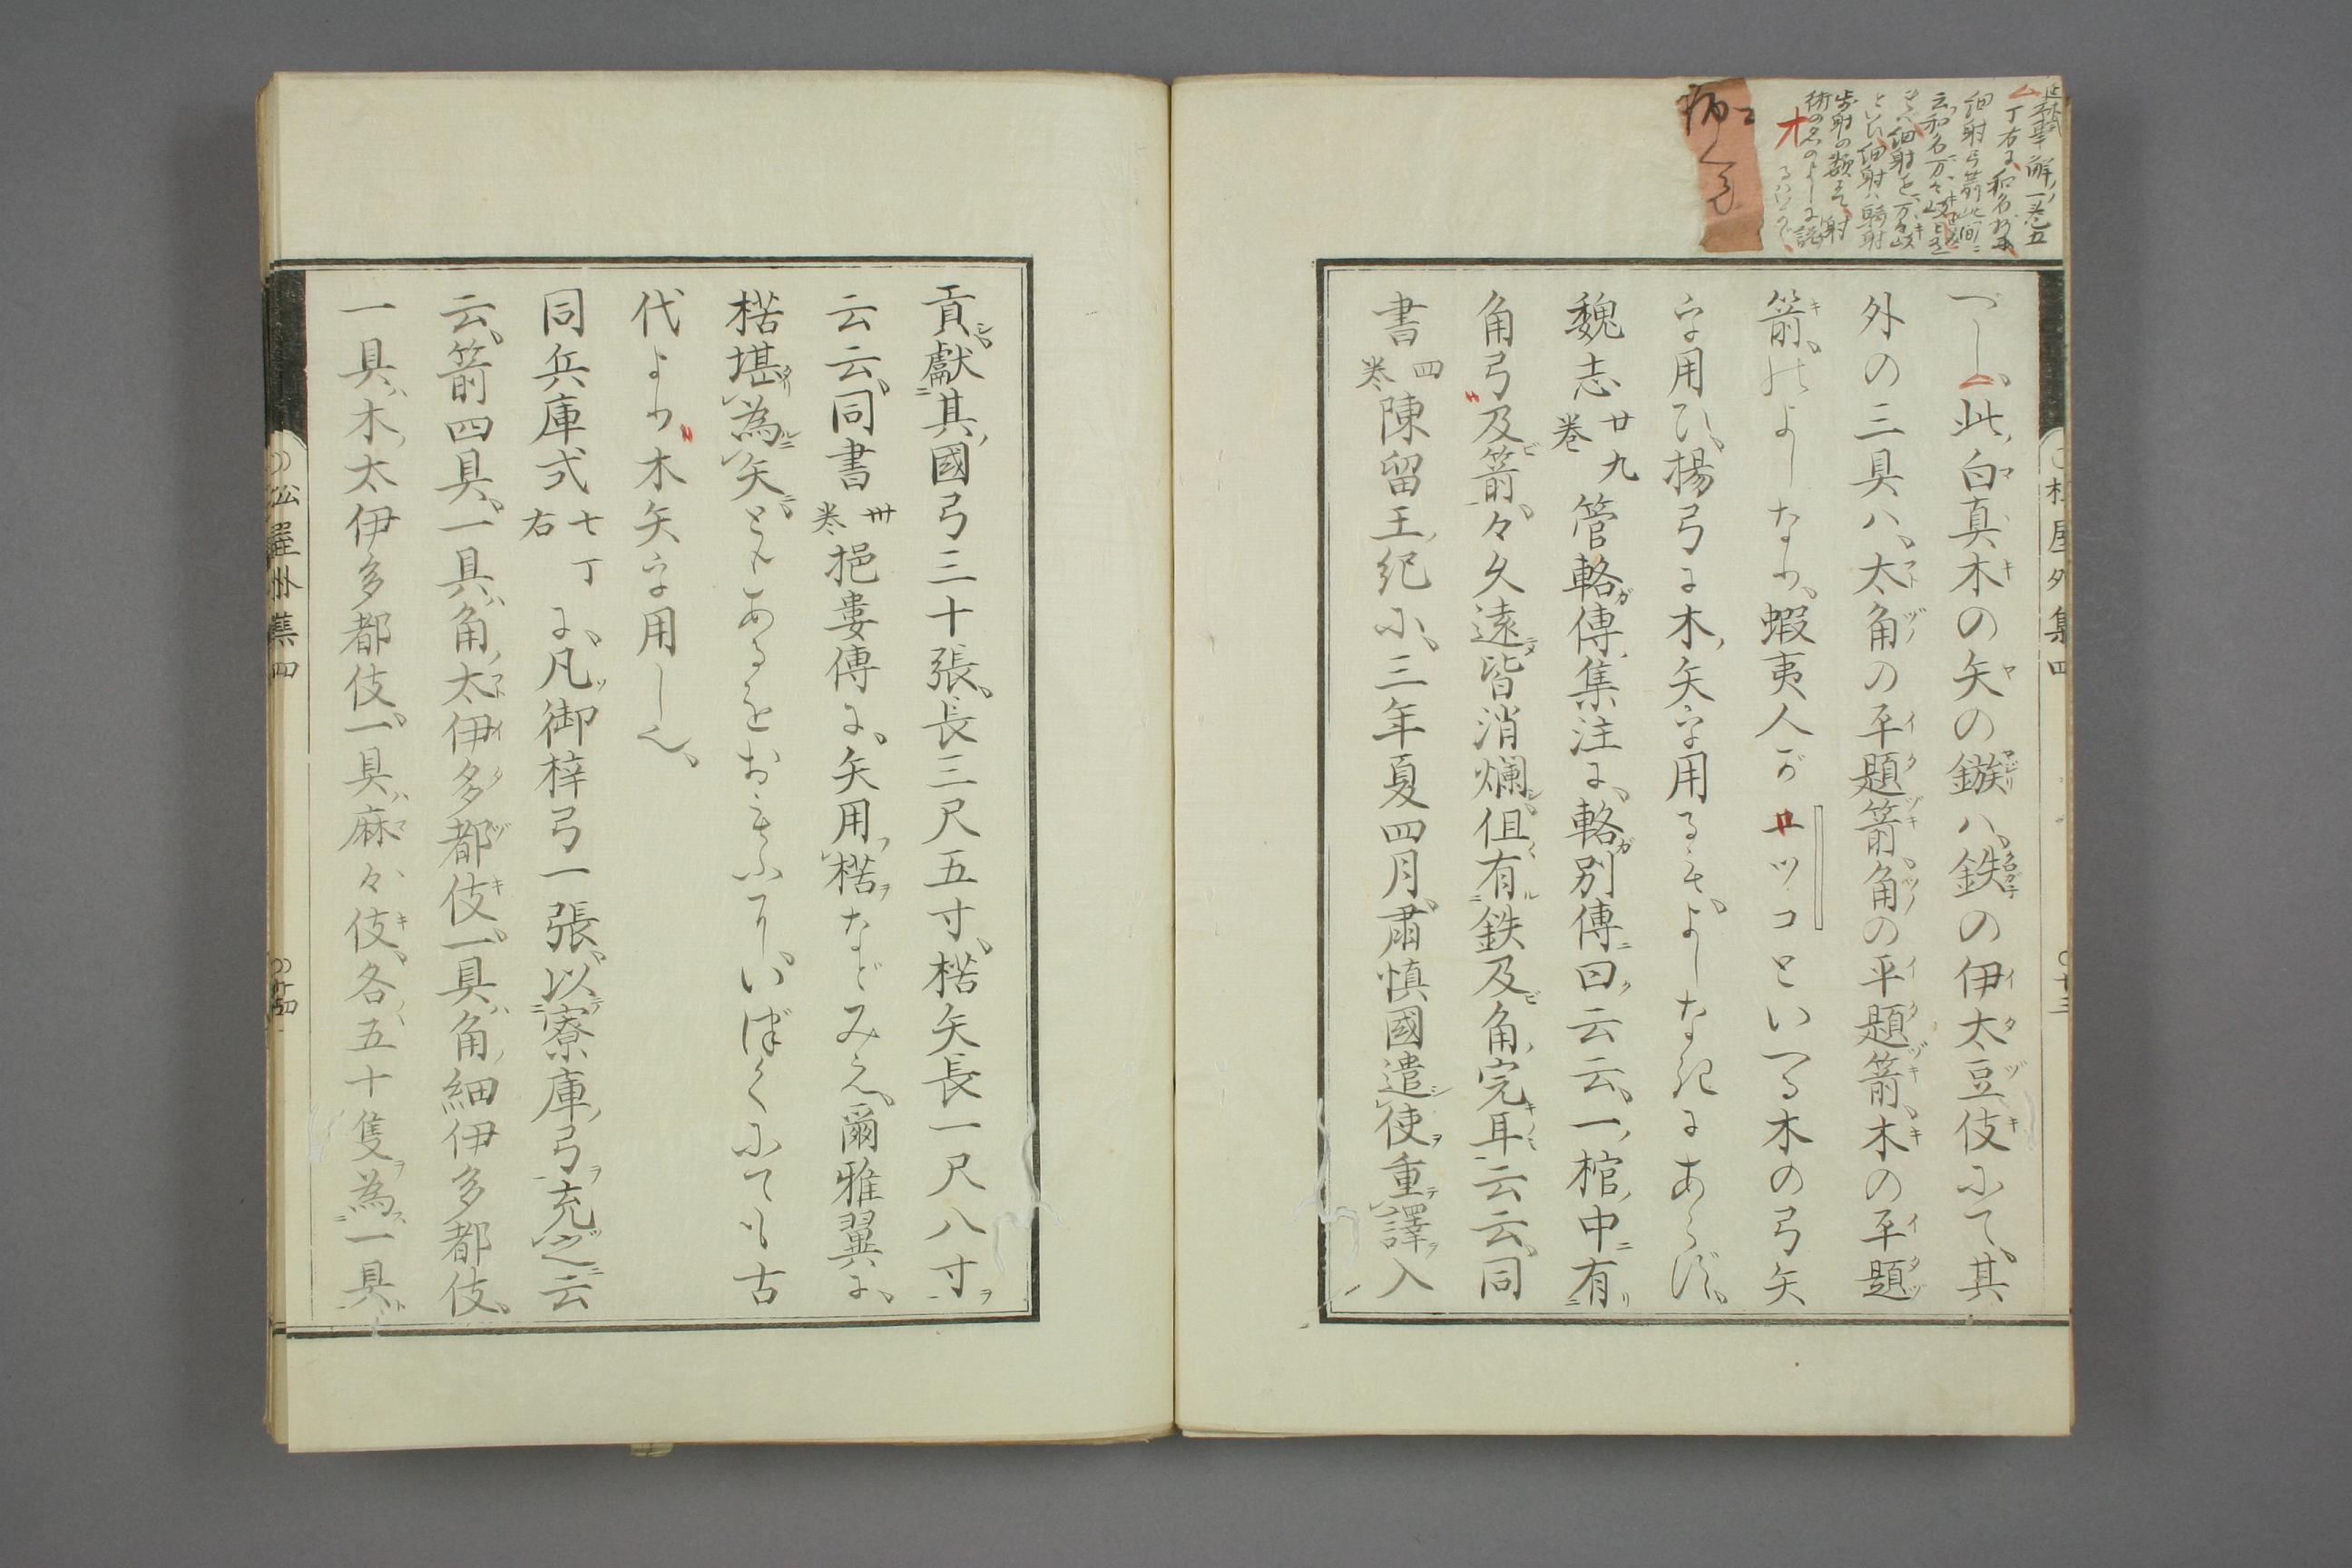 べし、此白真木の矢の鏃ハ、鉄の伊太豆伎にて、其
外の三具ハ、太角の平題箭、角の平題箭、木の平題
箭、のよしなり、蝦夷人がロツコといへる木の弓矢
を用ひ、楊弓に木矢を用るも、よしなきにあらず、
魏志廿九巻管輅傳集注に、輅別傳曰云云、一棺中有
角弓及箭、々久遠皆消爛但有鉄及角完耳云云、同
書四巻陳留王紀に、三年夏四月肅慎國遣使重譯入
貢獻其國弓三十張、長三尺五寸、楛矢長一尺八寸
云云、同書卅巻挹婁傳に、矢用楛などみえ、爾雅翼に、
楛堪為矢ともあるをおもふに、いづくにても古
代より木矢を用し也、
同兵庫式七丁右に、凡御梓弓一張、以寮庫弓充之云
云、箭四具、一具角太伊多都伎、一具角細伊多都伎、
一具木太伊多都伎、一具麻々伎、各五十隻為一具、
松屋外集四
〇十三
〇松屋外集四
〇十四